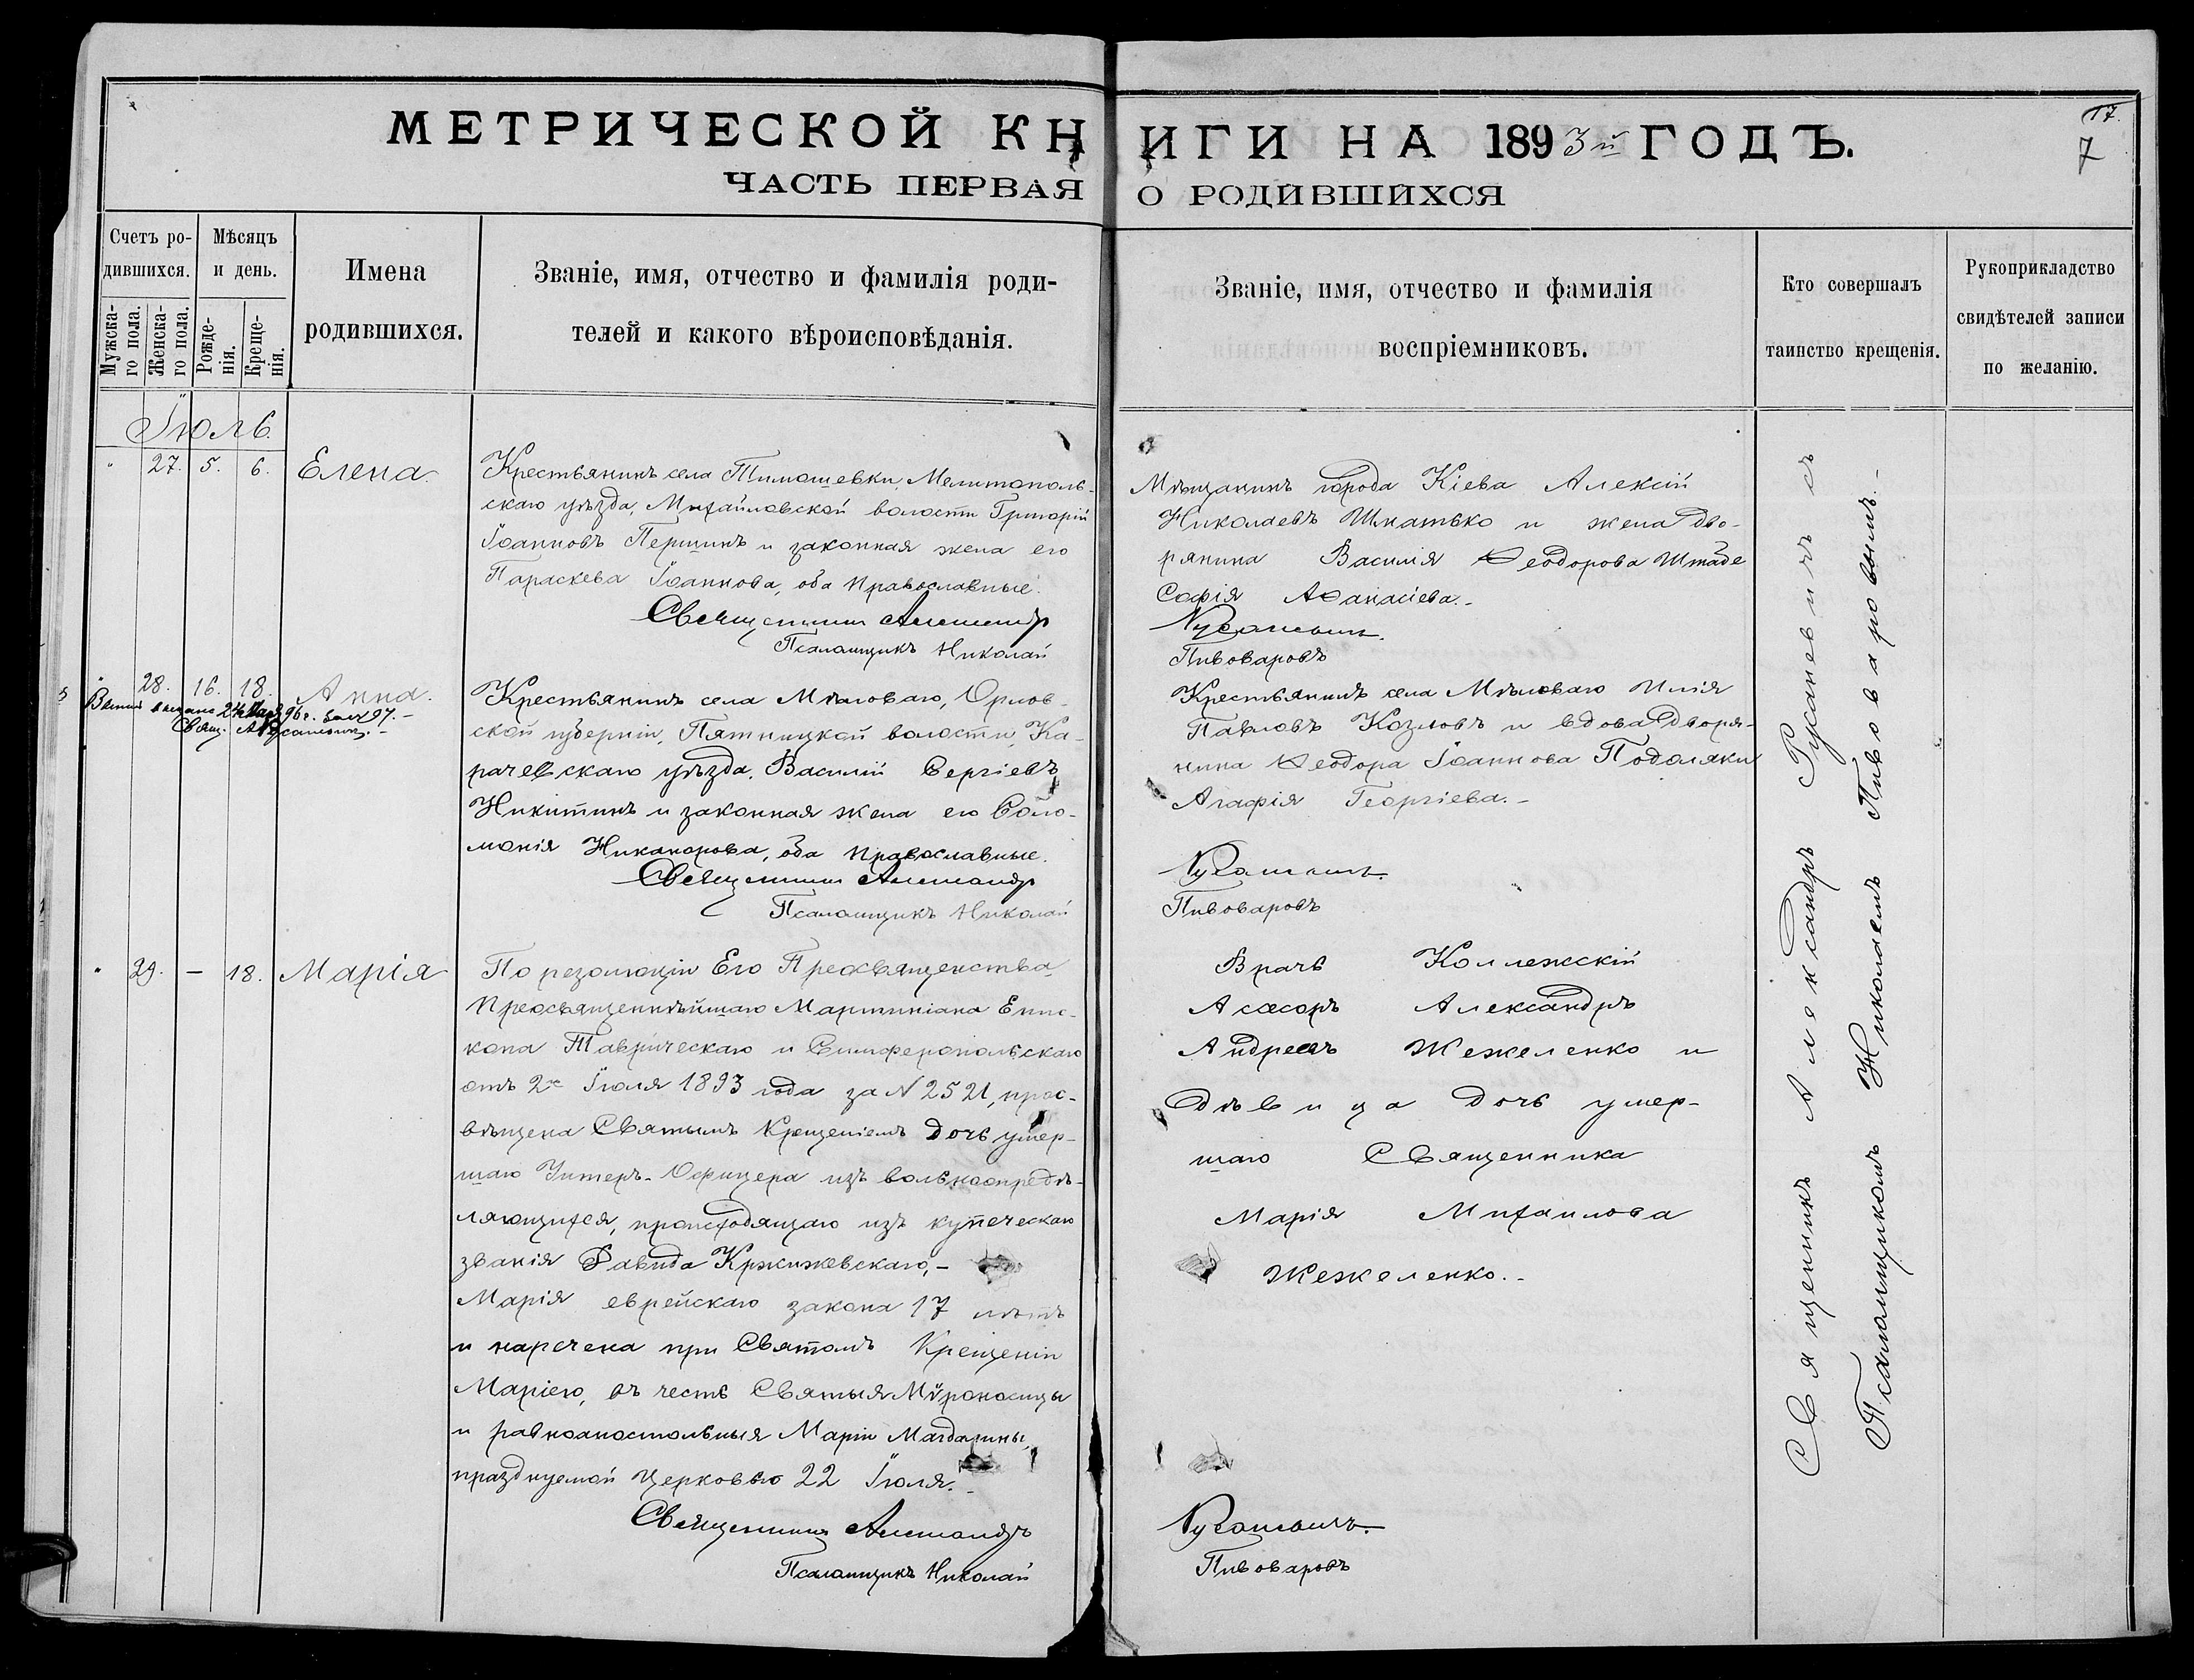 17.
7
МЕТРИЧЕСКОЙ КНИГИ НА 1893й ГОДЪ.
ЧАСТЬ ПЕРВАЯ О РОДИВШИХСЯ
Счетъ ро-
дившихся.
Мужска-
го пола.
Женска-
го пола.
Мѣсяцъ
и день.
Рожде-
нія.
Креще-
нія.
Имена
родившихся.
Званіе, имя, отчество и фамилія роди-
телей и какого вѣроисповѣданія.
Званіе, имя, отчество и фамилія
воспріемниковъ.
Кто совершалъ
таинство крещенія.
Рукоприкладство
свидѣтелей записи
по желанію.
Іюль.
" 27. 5. 6. Елена.
Крестьянинъ села Тимошевки, Мелитополь-
скаго уѣзда, Михайловской волости Григорій
Іоанновъ Першинъ и законная жена его
Параскева Іоаннова, оба православные.
Священникъ Александръ
Псаломщикъ Николай
Мѣщанинъ города Кіева Алексій
Николаевъ Шнатько и жена дво-
рянина Василія Ѳеодорова Штабе
Софія Аѳанасіева.-
Русаневичъ.
Пивоваровъ
" 28. 16. 18. Анна.
96 г.
Свящ. А. Русаневичъ.-
Крестьянинъ села Мѣловаго, Орлов-
ской губерніи, Пятницкой волости, Ка-
рачевскаго уѣзда, Василій Сергіевъ
Никитинъ и законная жена его Соло-
монія Никанорова, оба православные.
Священникъ Александръ
Псаломщикъ Николай
Крестьянинъ села Мѣловаго Илія
Павловъ Козловъ и вдова дворя-
нина Ѳеодора Іоаннова Подоляки
Агафія Георгіева.-
Русаневичъ.
Пивоваровъ
" 29. — 18. Марія
По резолюціи Его Преосвященства
Преосвященнѣйшаго Мартиніана Епис-
копа Таврическаго и Симферопольскаго
отъ 2го Іюля 1893 года за N 2521, прос-
вѣщена Святымъ Крещеніемъ дочь умер-
шаго Унтеръ-Офицера изъ вольноопредѣ-
ляющихся, происходящаго изъ купеческаго
званія Давида Кржижевскаго,-
Марія еврейскаго закона 17 лѣтъ
и наречена при Святомъ Крещеніи
Маріею, въ честь Святыя Мѵроносицы
и равноапостольныя Маріи Магдалины,
празднуемой Церковью 22 Іюля.-
Священникъ Александръ
Псаломщикъ Николай
Врачъ Коллежскій
Асесоръ Александръ
Андреевъ Жежеленко и
дѣвица дочь умер-
шаго Священника
Марія Михаилова
Жежеленко.-
Русаневичъ.
Пивоваровъ
Священникъ Александръ Русаневичъ съ
Псаломщикомъ Николаемъ Пивоваровымъ.